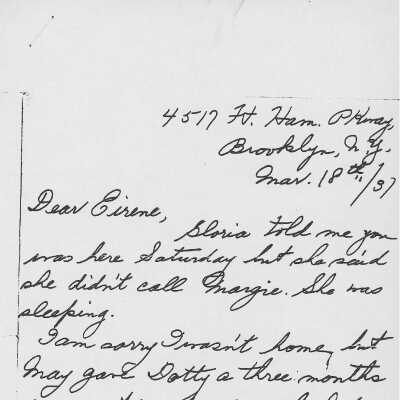 4517 Ft. Ham. PKway,
Brooklyn, N.Y.
Mar. 18th/37
Dear Eirene,
Gloria told me you
was here Saturday but she said
she didn't call Margie. She was
sleeping.
I am sorry I wasn't home, but
May gave Dotty a three months